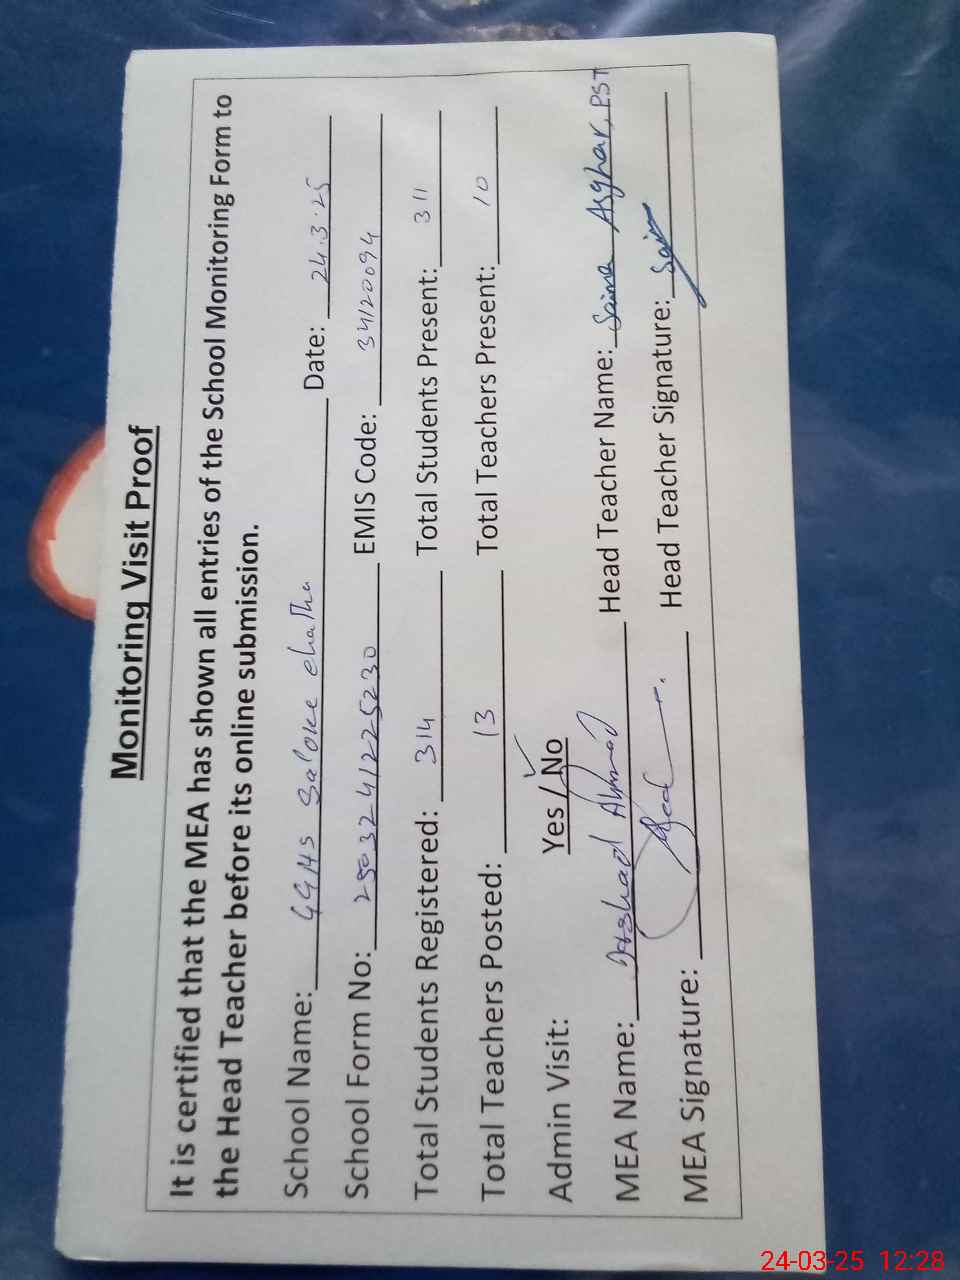 Monitoring Visit Proof
It is certified that the MEA has shown all entries of the School Monitoring Form to
the Head Teacher before its online submission.
School Name: GGHS Saloke chatha Date: 24.3.25
School Form No: 2503241225230 EMIS Code: 34120094
Total Students Registered: 314 Total Students Present: 311
Total Teachers Posted: 13 Total Teachers Present: 10
Admin Visit: Yes / No ✓
MEA Name: Arshad Ahmad Head Teacher Name: Saima Asghar, PST
MEA Signature: Head Teacher Signature:
24-03-25 12:28